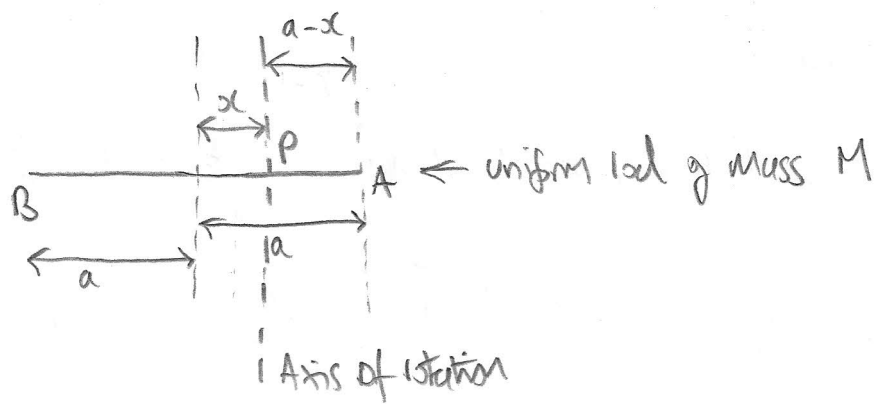 a-x
x
P
B
A ← uniform rod of mass M
a
a
Axis of rotation